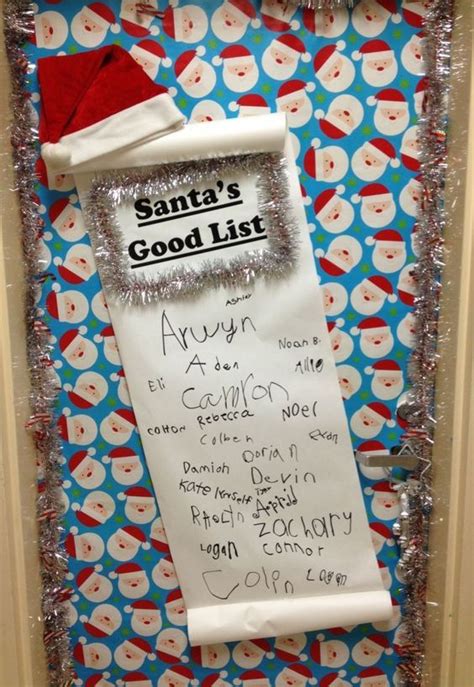 Santa's
Good List
Ashley
Arwyn
Noah B.
Aden
Allie
Eli
Camron
Colton Rebecca Noel
Colben
Dorian
Damion
Devin
Kate
Zachary
Logan
Connor
Colin
Logan